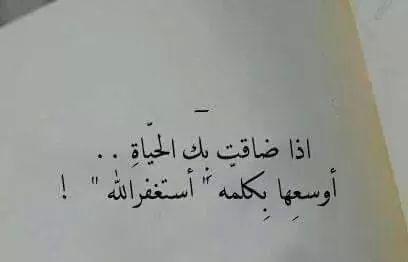 اذا ضاقتّ بِك الحّياةِ . .
أوسعِها بِكلمه " أستغفرالله " !